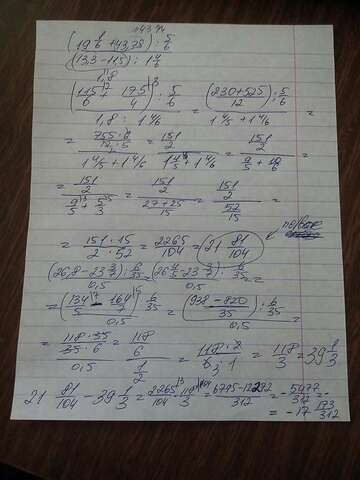 (19 1/6 + 43,75) : 5/6
(13,3 - 11,5) : 1 4/6
1,8
(115/6 |2 + 175/4 |3) : 5/6 / 1,8 : 1 4/6 = (230+525)/12 : 5/6 / 1 4/5 + 1 4/6 =
= 755·6 / 12·5 / 1 4/5 + 1 4/6 = 151/2 / 1 4/5 + 1 4/6 = 151/2 / 9/5 + 10/6
= 151/2 / 9/5 + 5/3 = 151/2 / 27+25/15 = 151/2 / 52/15
= 151·15 / 2·52 = 2265/104 = 21 81/104
(26,8 - 23 3/7) · 6/35 / 0,5 = (26 4/5 - 23 3/7) : 6/35 / 0,5 =
= (134/5 |7 - 164/7 |5) : 6/35 / 0,5 = (938 - 820 / 35) : 6/35 / 0,5 =
= 118·35 / 35·6 / 0,5 = 118/6 / 1/2 = 118·2 / 6·1 = 118/3 = 39 1/3
21 81/104 - 39 1/3 = 2265/104 |3 - 118/3 |104 = 6795-12272/312 = - 5477/312 =
= - 17 173/312